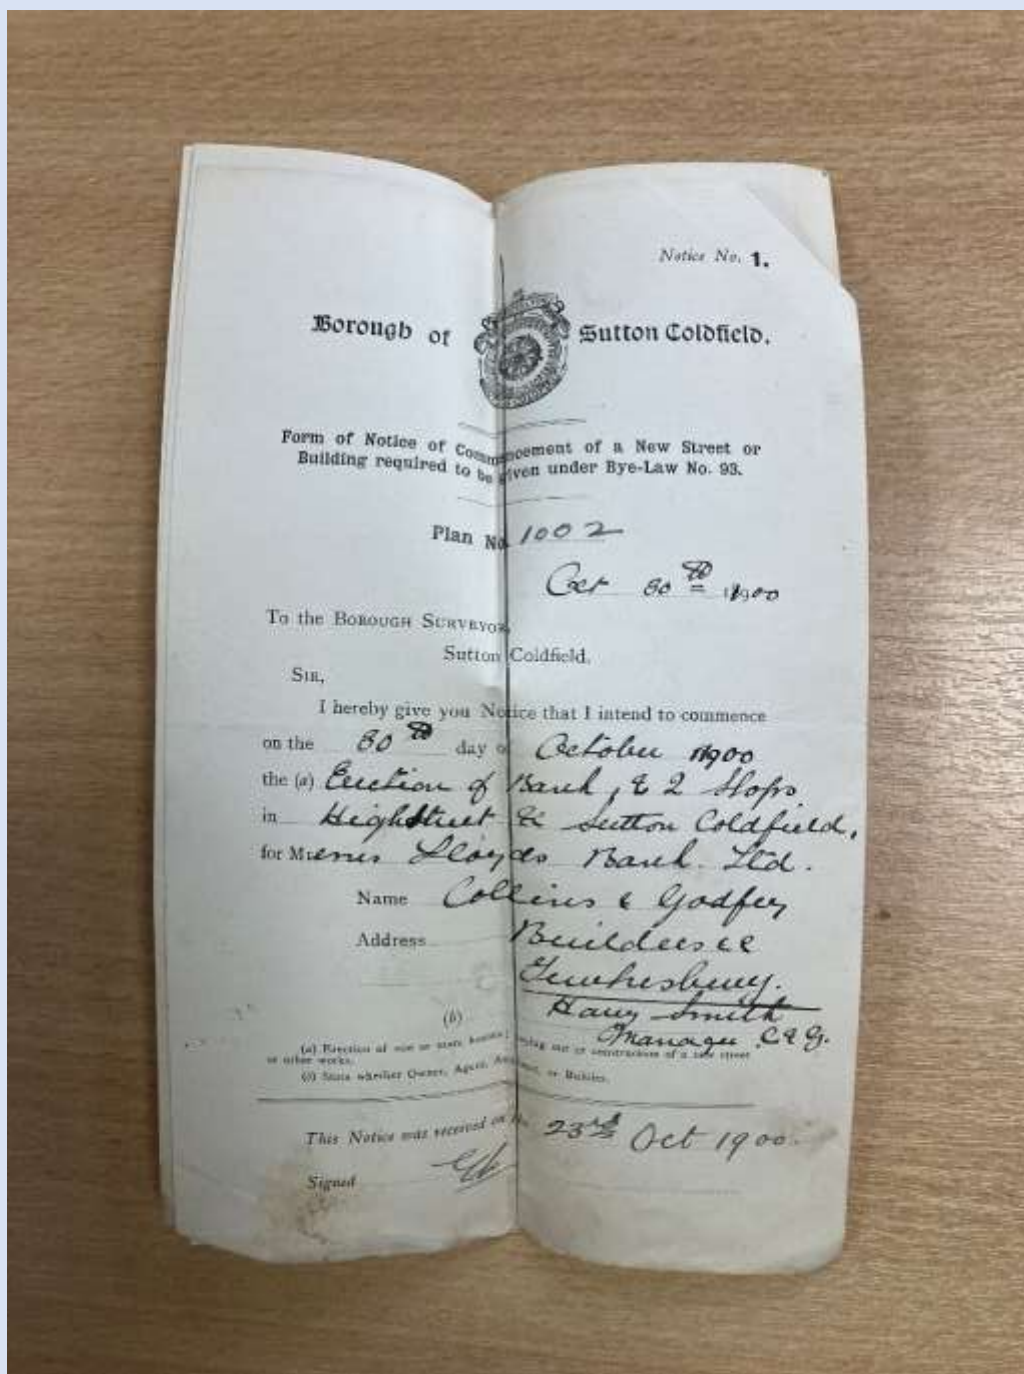 Notice No. 1.
Borough of Sutton Coldfield.
Form of Notice of Commencement of a New Street or
Building required to be given under Bye-Law No. 93.
Plan No. 1002
Oct 30th 1900
To the BOROUGH SURVEYOR,
Sutton Coldfield.
SIR,
I hereby give you Notice that I intend to commence
on the 30th day of October 1900
the (a) Erection of Bank, & 2 Shops
in High Street &c Sutton Coldfield,
for Messrs Lloyds Bank Ltd.
Name Collins & Godfrey
Address Builders &c
Tewkesbury.
Harry Smith
(b) Manager C & G.
(a) Erection of one or more houses; laying out or construction of a new street
or other works.
(b) State whether Owner, Agent, Architect, or Builder.
This Notice was received on the 23rd Oct 1900.
Signed